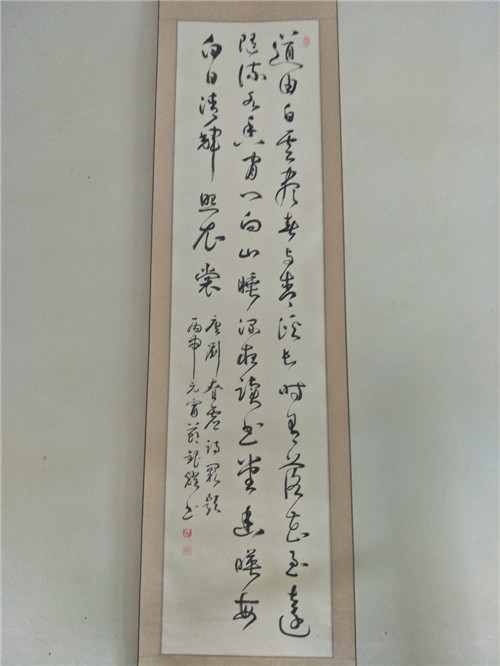 道由白雲盡春与青溪長時有落花至遠
隨流水香閒门向山路深柳讀书堂幽暎每
白日清輝照衣裳
唐劉昚虛詩闕題
丙申元宵 书